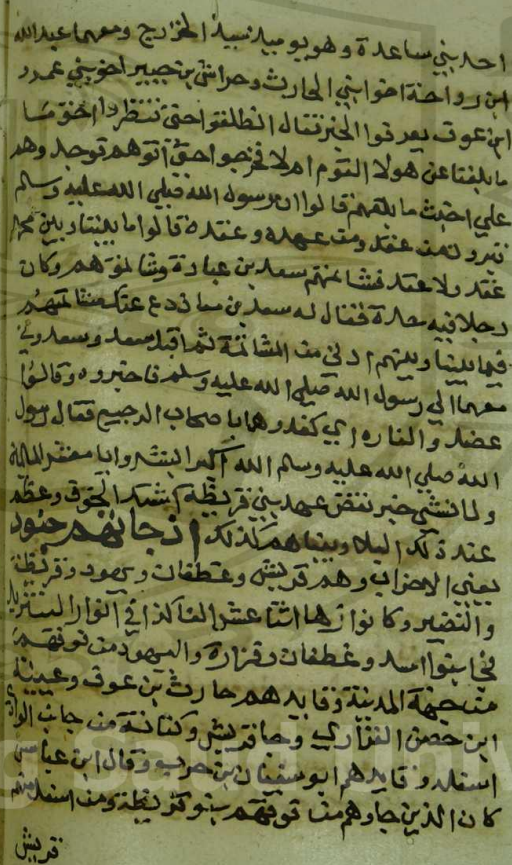 احد بني ساعدة وهو يوميذ سيد الخزرج ومعهما عبد الله
ابن رواحة اخو بني الحارث وخوات بن جبير اخو بني عمرو
ابن عوف يعرفوا الخبر فقال انطلقوا حتى تنظروا احق ما
ما بلغنا عن هولا القوم ام لا فخرجوا حتى اتوهم فوجدوهم
علي اخبث ما بلغهم قالوا من رسول الله صلي الله عليه وسلم
تبروا من عقده ومن عهده وعقده قالوا ما بيننا وبين محمد
عقد ولا عهد فشاتمهم سعد بن عبادة وشاتموهم وكان
رجلا فيه حدة فقال له سعد بن معاذ دع عنك مشاتمتهم
فيما بيننا وبينهم ادني من المشاتمة ثم اقبل سعد وسعد ومن
معهما الي رسول الله صلي الله عليه وسلم فاخبروه وقالوا
عضل والقاره اي كغدرهما باصحاب الرجيع فقال رسول
الله صلي الله عليه وسلم الله اكبر ابشروا يا معشر المسلمين
ولما انتهي خبر نقض عهد بني قريظة اشتد الخوف وعظم
عند ذلك البلا وبينما هم كذلك اذ جاتهم جنود
يعني الاحزاب وهم قريش وغطفان ويهود وقريظة
والنضير وكانوا زها اثنا عشر الفا
بنوا اسد وغطفان وفزارة واليهود من فوقهم
من جهة المدينة وقايدهم حارث بن عوف وعيينة
ابن حصن الفزاري وجا قريش وكنانة من جانب الوادي
اسفله وقايدهم ابو سفيان بن حرب وقال ابن عباس
كان الذين جاوهم من فوقهم بنو قريظة ومن اسفل منهم
قريش